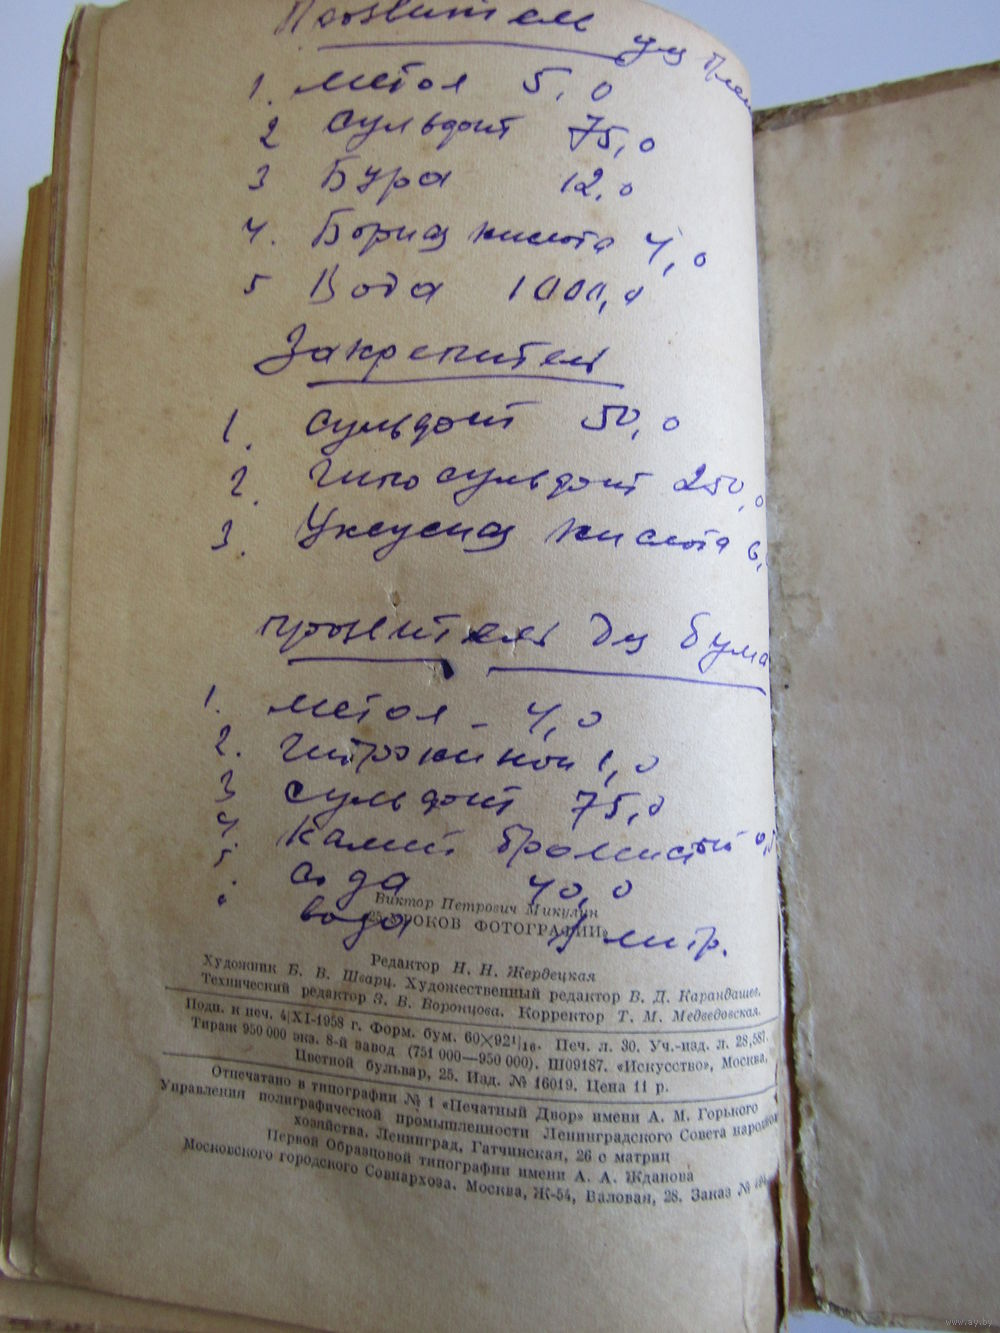 Проявитель для
1. метол 5,0
2 сульфит 75,0
3 Бура 12,0
4. Борная кислота 4,0
5 Вода 1000,0
Закрепитель
1. сульфит 50,0
2. Гипосульфит 250,0
3. Уксусная кислота 6,
проявитель для бума
1. метол - 4,0
2. гидрохинон 1,0
3 сульфит 75,0
4. Калий бромистый 0,5
5 сода 40,0
6 вода 1 литр.
Виктор Петрович Микулин
25 УРОКОВ ФОТОГРАФИИ
Редактор Н. Н. Жердецкая
Художник Б. В. Шварц. Художественный редактор В. Д. Карандашев.
Технический редактор З. В. Воронцова. Корректор Т. М. Медведовская.
Подп. к печ. 4/XI-1958 г. Форм. бум. 60×92 1/16. Печ. л. 30. Уч.-изд. л. 28,587.
Тираж 950 000 экз. 8-й завод (751 000—950 000). Ш09187. «Искусство», Москва,
Цветной бульвар, 25. Изд. № 16019. Цена 11 р.
Отпечатано в типографии № 1 «Печатный Двор» имени А. М. Горького
Управления полиграфической промышленности Ленинградского Совета народного
хозяйства. Ленинград, Гатчинская, 26 с матриц
Первой Образцовой типографии имени А. А. Жданова
Московского городского Совнархоза. Москва, Ж-54, Валовая, 28. Заказ №
www.ay.by